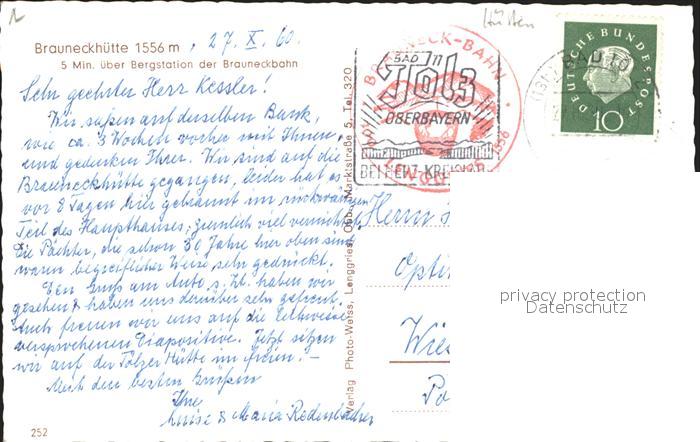 Hütten
Brauneckhütte 1556 m, 27. X. 60.
5 Min. über Bergstation der Brauneckbahn
Sehr geehrter Herr Kessler!
Wir saßen auf derselben Bank,
wie ca. 3 Wochen vorher mit Ihnen
und gedenken Ihrer. Wir sind auf die
Brauneckhütte gegangen, leider hat es
vor 8 Tagen hier gebrannt im rückwärtigen
Teil des Haupthauses, ziemlich viel vernichtet.
Die Pächter, die schon 30 Jahre hier oben sind,
waren begreiflicher Weise sehr gedrückt.
Den Gruß am Auto s. Zt. haben wir
gesehen & haben uns darüber sehr gefreut.
Auch freuen wir uns auf die
versprochenen Diapositive. Jetzt sitzen
wir auf der Tölzer Hütte im freien! -
Mit den besten Grüßen
Ihre
Luise & Maria Redenbacher
252
Verlag Photo-Weiss, Lenggries, Obb., Marktstraße 5, Tel. 320
BRAUNECK-BAHN
BAD Tölz
OBERBAYERN
DEUTSCHE BUNDESPOST
10
Herrn
Opti
Wies
Po
privacy protection
Datenschutz